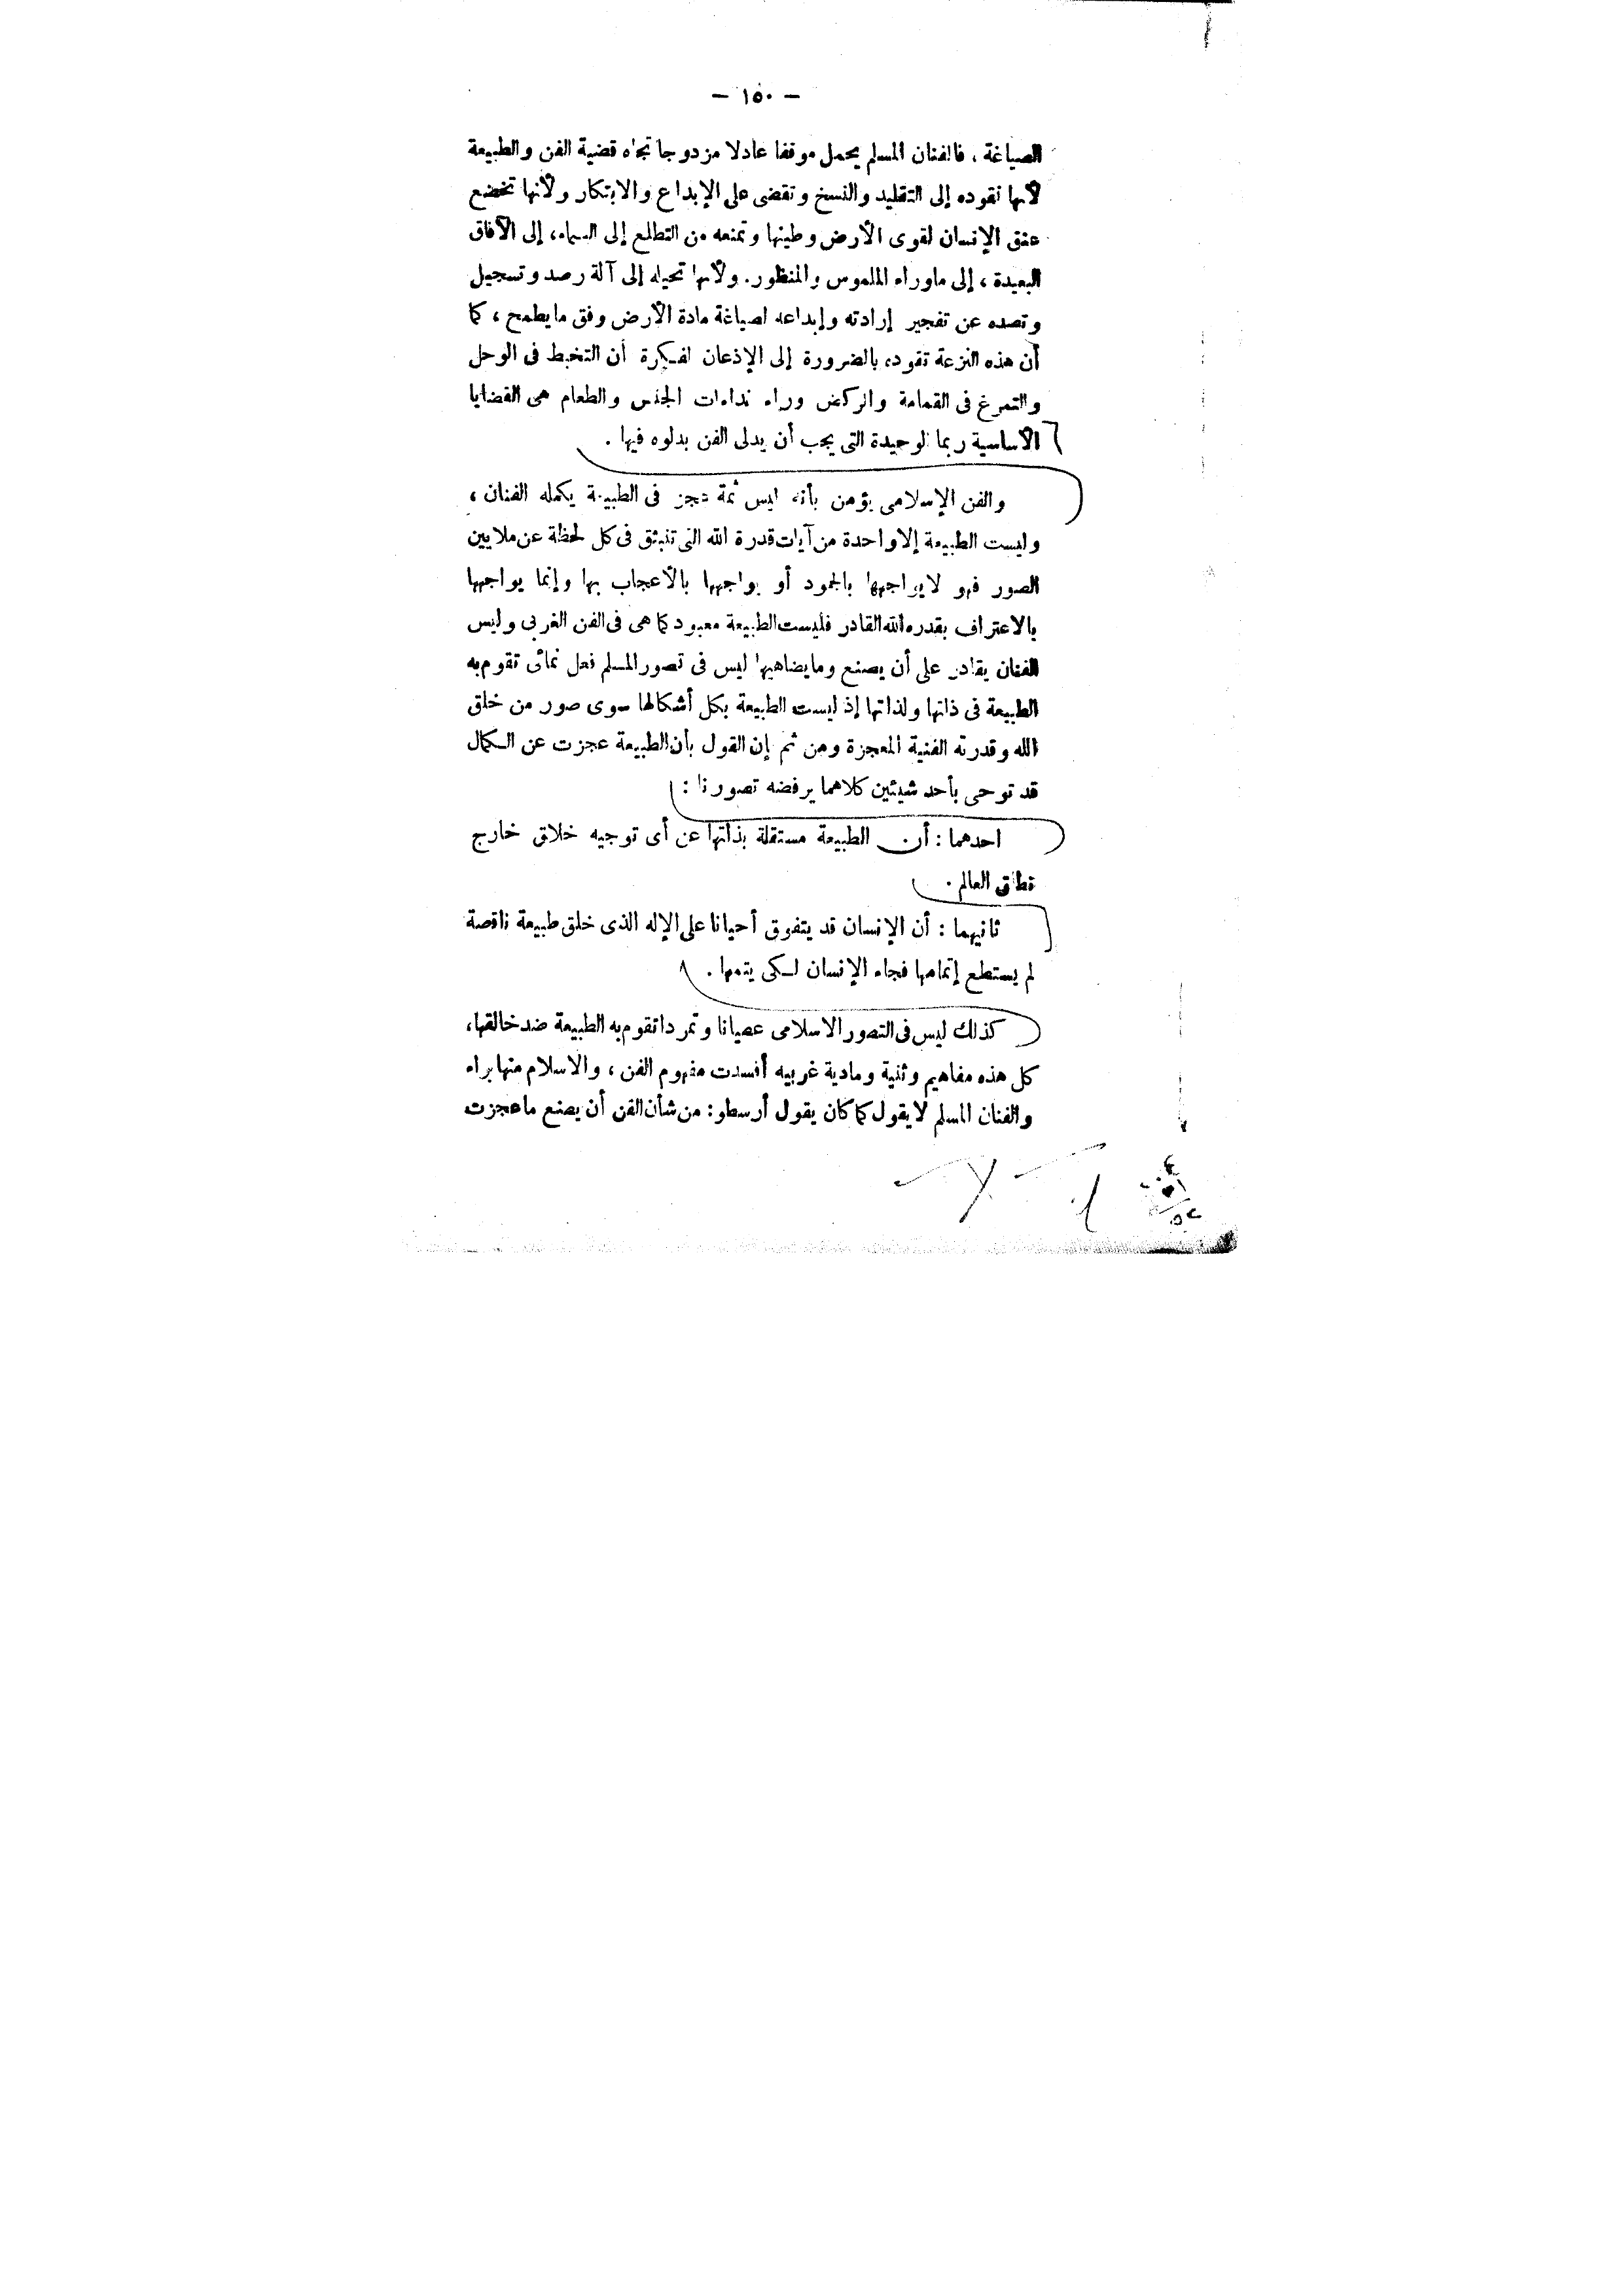 — ١٥٠ —
الصياغة ، فالفنان المسلم يحمل موقفا عادلا مزدوجا تجاه قضية الفن والطبيعة
لأنها تقوده إلى التقليد والنسخ وتقضى على الإبداع والابتكار ولأنها تخضع
عنق الإنسان لقوى الأرض وطينها وتمنعه من التطلع إلى السماء، إلى الآفاق
البعيدة ، إلى ماوراء الملموس والمنظور. ولأنها تحيله إلى آلة رصد وتسجيل
وتصده عن تفجير إرادته وإبداعه لصياغة مادة الأرض وفق مايطمح ، كما
أن هذه النزعة تقود، بالضرورة إلى الإذعان لفكرة أن التخبط فى الوحل
والتمرغ فى القمامة والركض وراء نداءات الجنس والطعام هى القضايا
الأساسية ربما الوحيدة التى يجب أن يدلى الفن بدلوه فيها .
والفن الإسلامى يؤمن بأنه ليس ثمة عجز فى الطبيعة يكمله الفنان ،
وليست الطبيعة إلا واحدة من آيات قدرة الله التى تنبثق فى كل لحظة عن ملايين
الصور فهو لايواجهها بالجمود أو يواجهها بالأعجاب بها وإنما يواجهها
بالاعتراف بقدره الله القادر فليست الطبيعة معبود كما هى فى الفن الغربى وليس
الفنان بقادر على أن يصنع ومايضاهيها ليس فى تصور المسلم فعل نمائى تقوم به
الطبيعة فى ذاتها ولذاتها إذ ليست الطبيعة بكل أشكالها سوى صور من خلق
الله وقدرته الفنية المعجزة ومن ثم إن القول بأن الطبيعة عجزت عن الكمال
قد توحى بأحد شيئين كلاهما يرفضه تصورنا :
احدهما : أن الطبيعة مستقلة بذاتها عن أى توجيه خلاق خارج
نطاق العالم .
ثانيهما : أن الإنسان قد يتفوق أحيانا على الإله الذى خلق طبيعة ناقصة
لم يستطع إتمامها فجاء الإنسان لكى يتمها .
كذلك ليس فى التصور الاسلامى عصيانا وتمردا تقوم به الطبيعة ضد خالقها،
كل هذه مفاهيم وثنية ومادية غربيه أفسدت مفهوم الفن ، والاسلام منها براء
والفنان المسلم لايقول كما كان يقول أرسطو : من شأن الفن أن يصنع ماعجزت